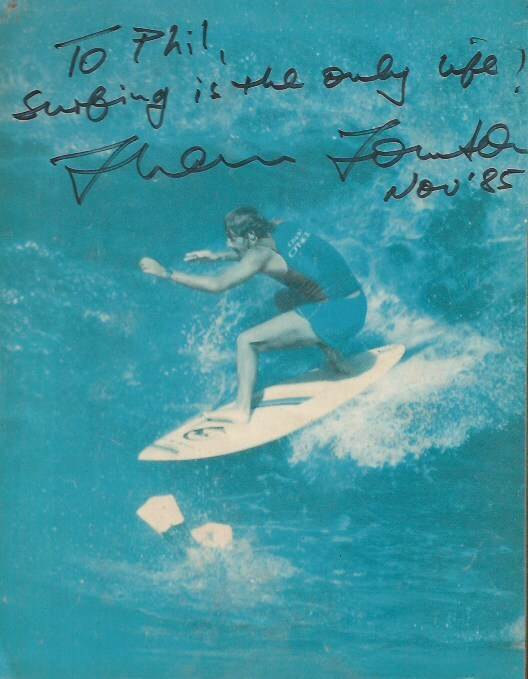 To Phil,
Surfing is the only life!
Shaun Tomson
Nov '85